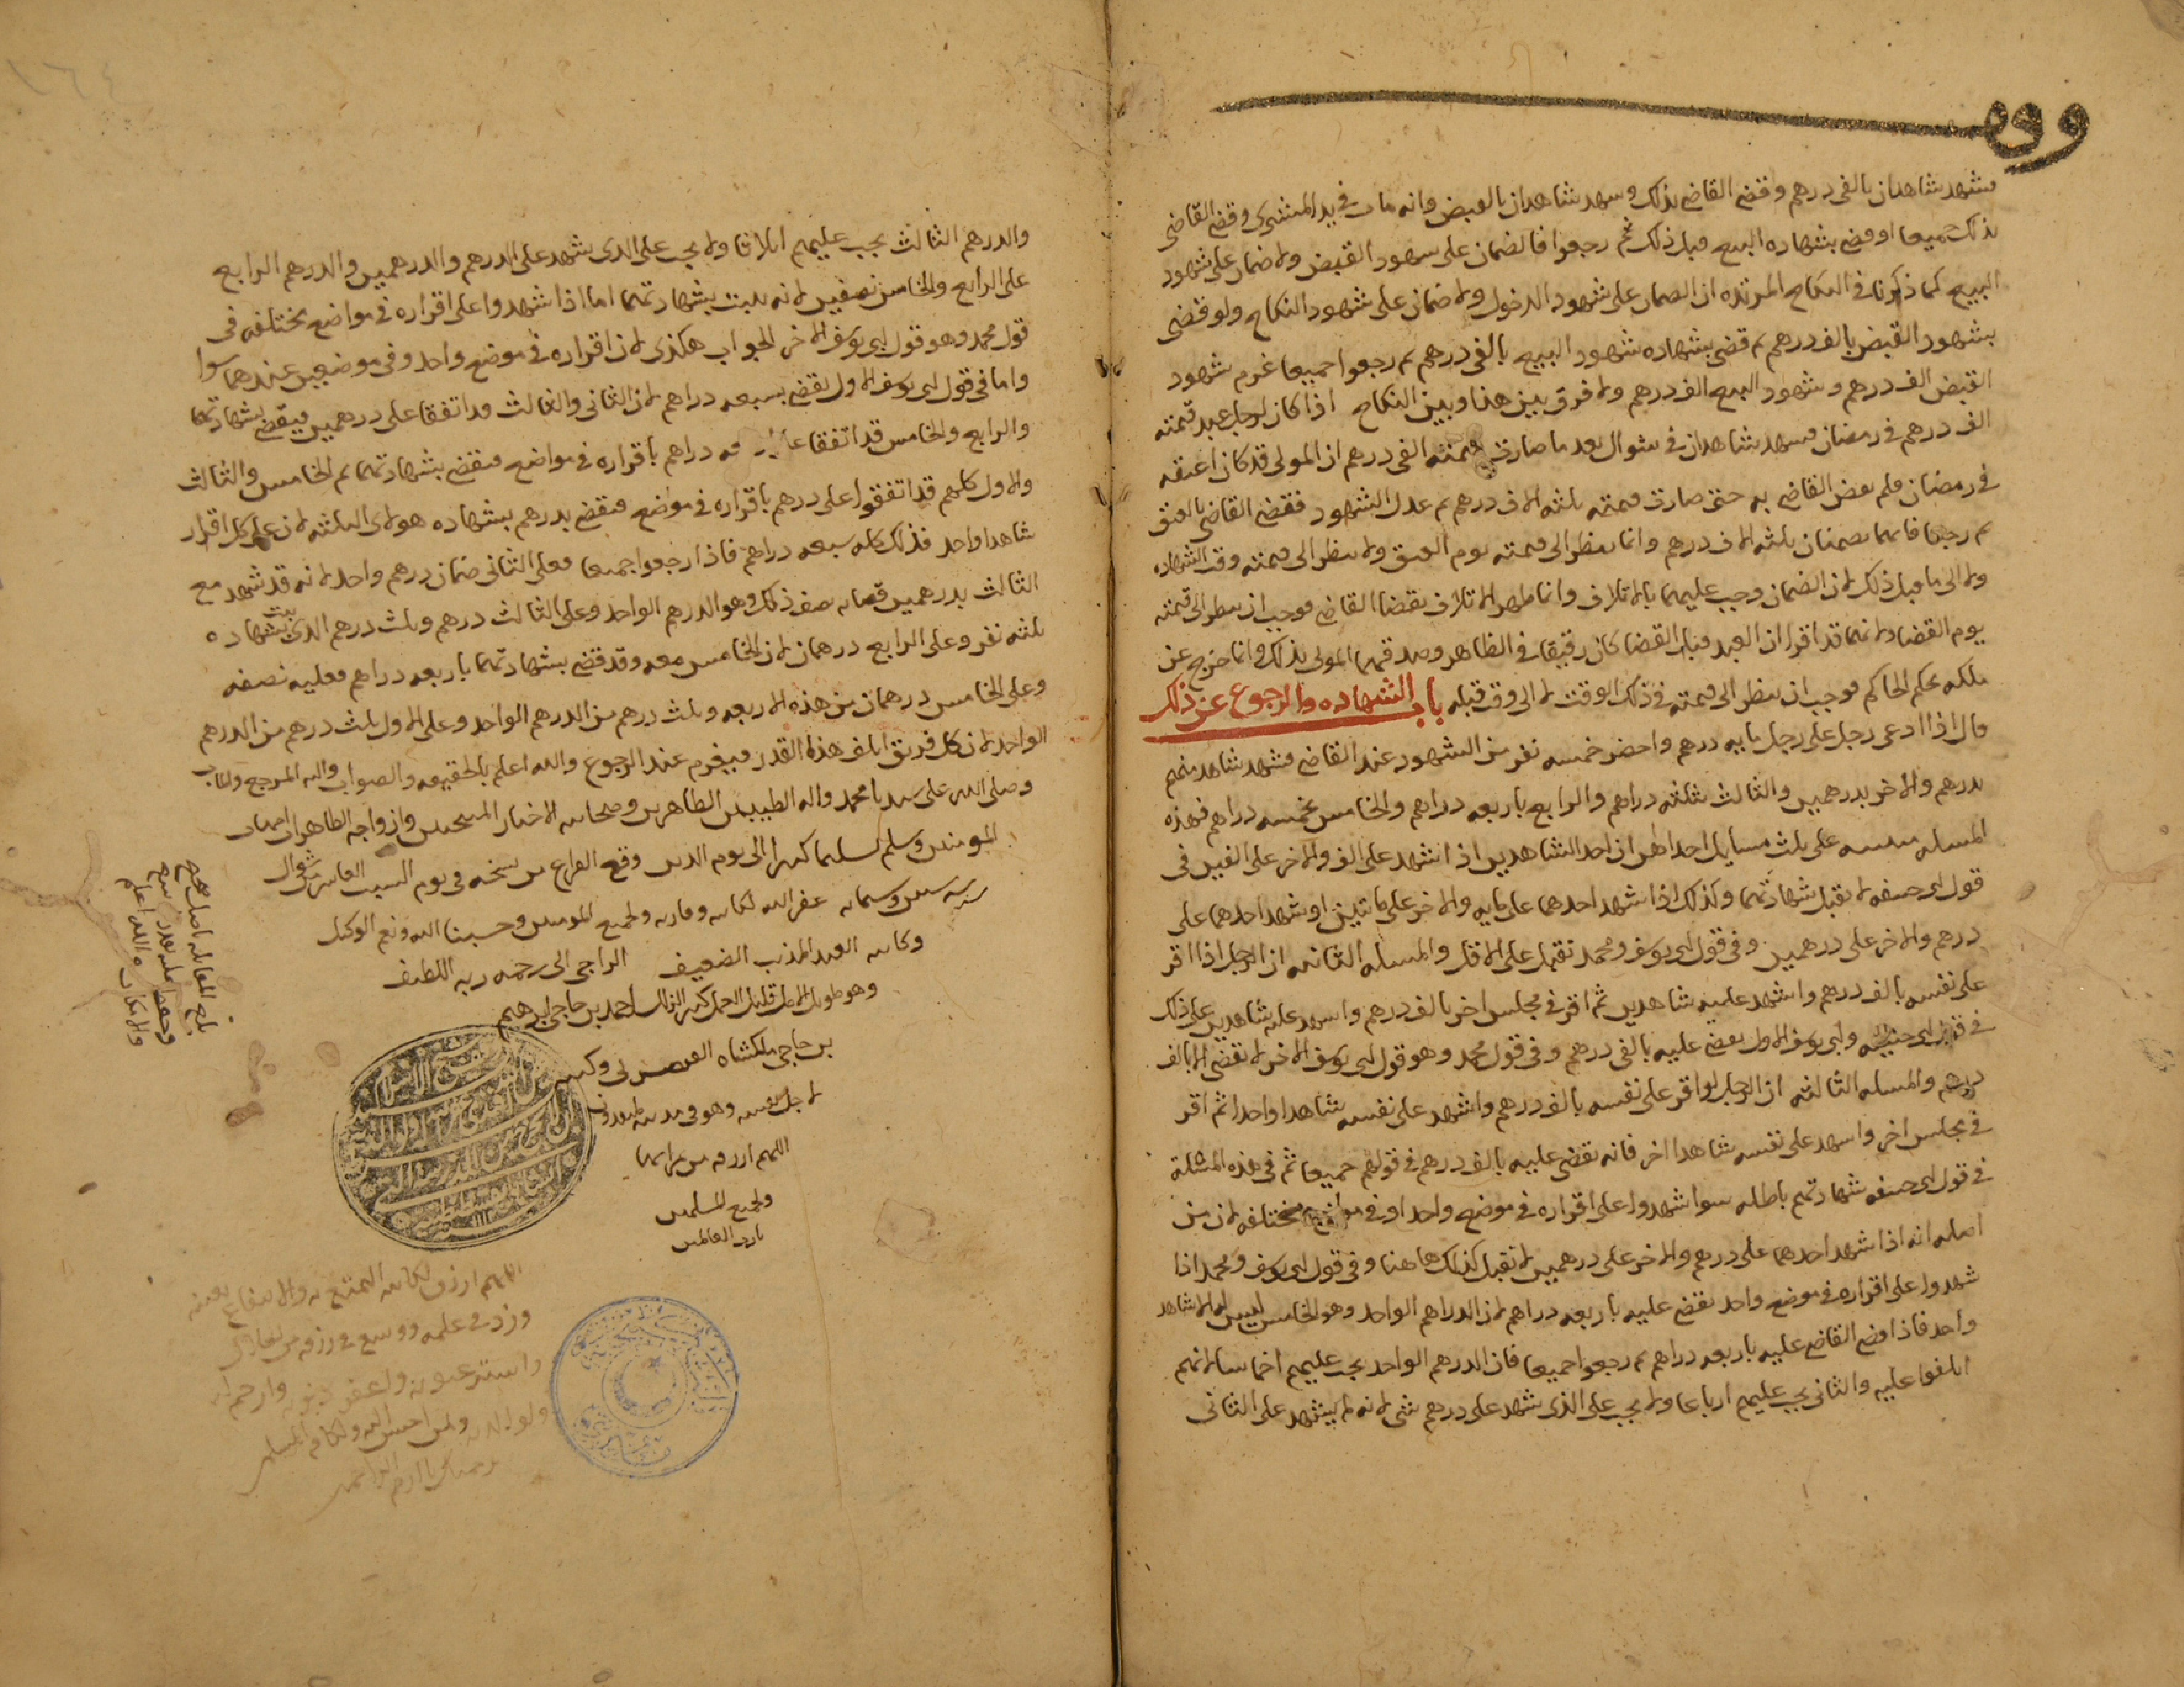 وقف
فشهد شاهدان بالفى درهم وقضى القاضى بذلك وسهد شاهدان بالقبض وانه مات فى يد المشترى وقضى القاضى
بذلك جميعا او قضى بشهاده البيع قبل ذلك ثم رجعوا فالضمان على سهود القبض ولا ضمان على شهود
البيع كما ذكرنا فى النكاح المرتده ان الضمان على شهود الدخول ولا ضمان على شهود النكاح ولو قضى
بشهود القبض بالف درهم ثم قضى بشهاده شهود البيع بالفى درهم ثم رجعوا جميعا غرم شهود
القبض الف درهم وشهود البيع الف درهم ولا فرق بين هذا وبين النكاح اذا كان لرجل عبد قيمته
الف درهم فى رمضان فسهد شاهدان فى شوال بعد ما صارت قيمته الفى درهم ان المولى قد كان اعتقه
فى رمضان فلم يقض القاضى به حتى صارت قيمته ثلثه الاف درهم ثم عدل الشهود فقضى القاضى بالعتق
ثم رجعا فانهما يضمنان ثلثه الاف درهم وانما ينظر الى قيمته يوم العتق ولا ينظر الى قيمته وقت الشهاده
ولا الى ما قبل ذلك لان الضمان وجب عليهما بالاتلاف وانما ظهر الاتلاف بقضا القاضى فوجب ان ينظر الى قيمته
يوم القضا ولانهما قد اقرا ان العبد قبل القضا كان رقيقا فى الظاهر وصدقهما المولى بذلك وانما خرج عن
ملكه بحكم الحاكم فوجب ان ينظر الى قيمته فى ذلك الوقت لا الى وقت قبله باب الشهاده والرجوع عن ذلك
قال اذا ادعى رجل على رجل مايه درهم واحضر خمسه نفر من الشهود عند القاضى فشهد شاهد منهم
بدرهم والاخر بدرهمين والثالث بثلثه دراهم والرابع باربعه دراهم والخامس بخمسه دراهم فهذه
المسله مبنيه على ثلث مسايل احداهن ان احد الشاهدين اذا شهد على الف والاخر على الفين فى
قول ابى حنيفه لا تقبل شهادتهما وكذلك اذا شهد احدهما على مايه والاخر على مايتين او شهد احدهما على
درهم والاخر على درهمين وفى قول ابى يوسف ومحمد تقبل على الاقل والمسله الثانيه ان الرجل اذا اقر
على نفسه بالف درهم واشهد عليه شاهدين ثم اقر فى مجلس اخر بالف درهم واسهد عليه شاهدين على ذلك
فى قول ابى حنيفه وابى يوسف الاول يقضى عليه بالفى درهم وفى قول محمد وهو قول ابى يوسف الاخر لا تقضى الا بالف
درهم والمسله الثالثه ان الرجل لو اقر على نفسه بالف درهم واشهد على نفسه شاهدا واحدا ثم اقر
فى مجلس اخر واسهد على نفسه شاهدا اخر فانه يقضى عليه بالف درهم فى قولهم جميعا ثم فى هذه المسله
فى قول ابى حنيفه شهادتهم باطله سوا شهدوا على اقراره فى موضع واحد او فى مواضع مختلفه لان من
اصله انه اذا شهد احدهما على درهم والاخر على درهمين لا تقبل كذلك هاهنا وفى قول ابى يوسف ومحمد اذا
شهدوا على اقراره فى موضع واحد يقضى عليه باربعه دراهم لان الدراهم الواحد وهو الخامس ليس له الا شاهد
واحد فاذا قضى القاضى عليه باربعه دراهم ثم رجعوا جميعا فان الدرهم الواحد يجب عليهم اخماسا لانهم
اتلفوا عليه والثانى يجب عليهم ارباعا ولا يجب على الذى شهد على درهم شى لانه لم يشهد على الثانى
١٦٤
والدرهم الثالث يجب عليهم اثلاثا ولا يجب على الذى شهد على الدرهم والدرهمين والدرهم الرابع
على الرابع والخامس نصفين لانه يثبت بشهادتهما اما اذا شهدوا على اقراره فى مواضع مختلفه فى
قول محمد وهو قول ابى يوسف الاخر الجواب هكذى لان اقراره فى موضع واحد وفى موضعين عندهما سوا
واما فى قول ابى يوسف الاول يقضى بسبعه دراهم لان الثانى والثالث قد اتفقا على درهمين فيقضى بشهادتهما
والرابع والخامس قد اتفقا على دراهم باقراره فى مواضع فيقضى بشهادتهما ثم الخامس والثالث
والاول كلهم قد اتفقوا على درهم باقراره فى مواضع فيقضى بدرهم بشهاده هولاى الثلثه لان على كل اقرار
شاهدا واحد فذلك كله سبعه دراهم فاذا رجعوا جميعا فعلى الثانى ضمان درهم واحد لانه قد شهد مع
الثالث بدرهمين فصار نصف ذلك وهو الدرهم الواحد وعلى الثالث درهم وثلث درهم الذى يثبت بشهاده
ثلثه نفر وعلى الرابع درهمان لان الخامس معه وقد قضى بشهادتهما باربعه دراهم فعليه نصفه
وعلى الخامس درهمان من هذه الاربعه وثلث درهم من الدرهم الواحد وعلى الاول ثلث درهم من الدرهم
الواحد لان كل فريق اتلف هذا القدر فيغرم عند الرجوع والله اعلم بالحقيقه والصواب واليه المرجع والماب
وصلى الله على سيدنا محمد واله الطيبين الطاهرين وصحابته الاخيار المنتجبين وازواجه الطاهرات امهات
المومنين وسلم تسليما كثيرا الى يوم الدين وقع الفراغ من نسخه فى يوم السبت العاشر من شوال
سنه وسمايه غفر الله لكاتبه وقاريه ولجميع المومنين وحسبنا الله ونعم الوكيل
وكاتبه العبد المذنب الضعيف الراجى الى رحمه ربه اللطيف
وهو طويل الامل قليل العمل كثير الزلل احمد بن حاجى ابرهيم
بن حاجى ملكشاه
لاجل نفسه وهو فى مدينه
اللهم ارزقه من
ولجميع المسلمين
يارب العالمين
بلغ المقابله باصل صحيح
والله اعلم
اللهم ارزق لكاتبه التمتع به والانتفاع
وزد فى علمه ووسع فى رزقه
واستر عيوبه واغفر ذنوبه وارحم
ولوالديه ولمن احسن اليه ولكافه المسلمين
برحمتك يا ارحم الراحمين